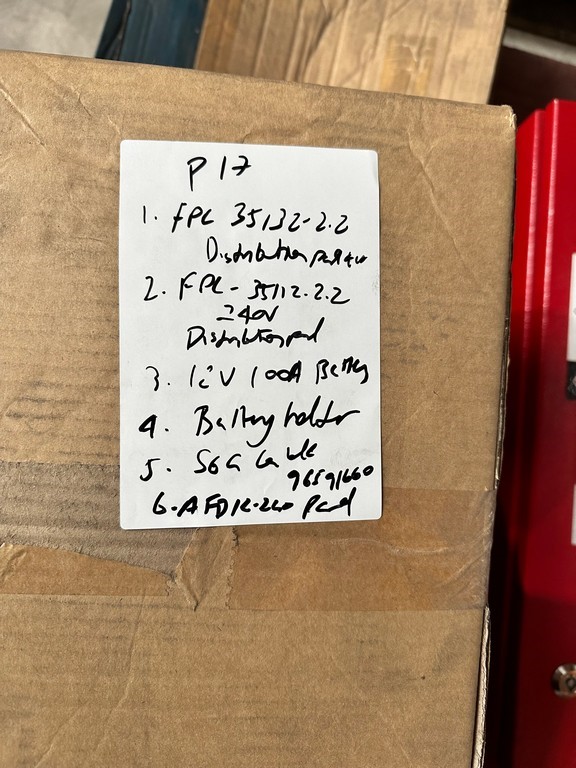 P 17
1. FPC 35132-2.2
Distribution panel
2. FPC - 35112.2.2
240V
Distribution panel
3. 12V 100A Battery
4. Battery holder
5. SGG Cable
96591660
6. AFD12-240 Panel